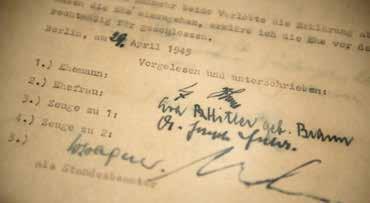 beide Verlobte die Erklärung
die Ehe einzugehen, erkläre ich die Ehe vor de
rechtmäßig für geschlossen.
Berlin, am 29. April 1945
Vorgelesen und unterschrieben:
1.) Ehemann:
2.) Ehefrau: Eva B Hitler geb. Braun
3.) Zeuge zu 1: Dr. Joseph Goebbels
4.) Zeuge zu 2:
5.) Wagner.
als Standesbeamter